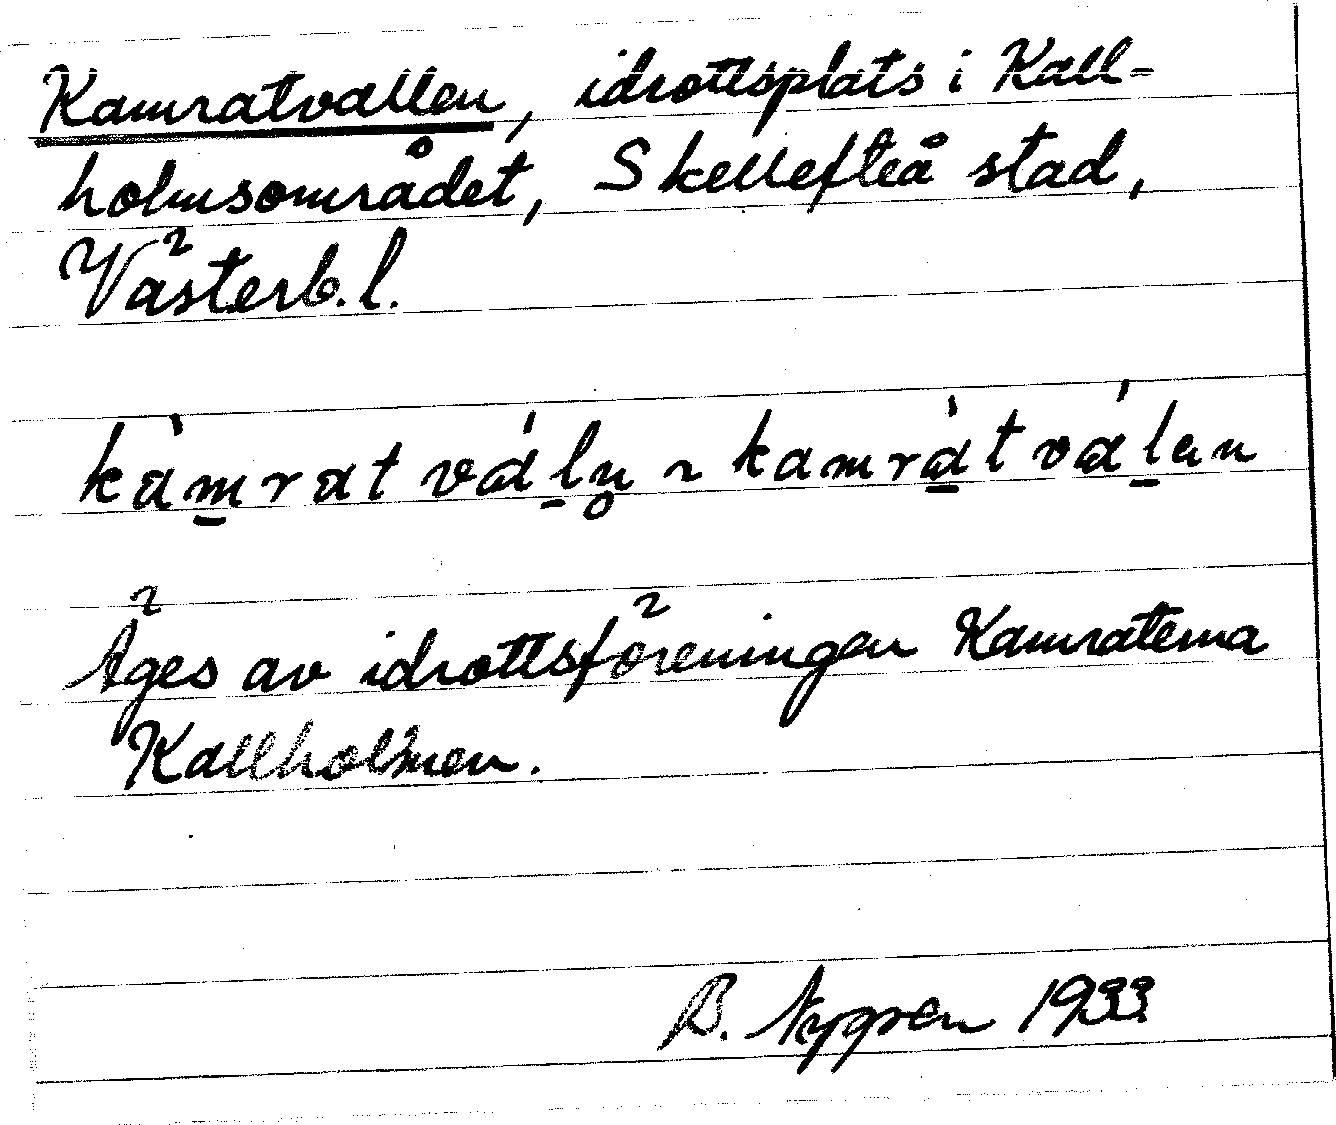 Kamratvallen, idrottsplats i Kall-
holmsområdet, Skellefteå stad,
Västerb.l.
kàm̲rat vál̲n̥ ~ kamrà̲t vál̲en
Äges av idrottsföreningen Kamraterna
Kallholmen.
B. Nygren 1933